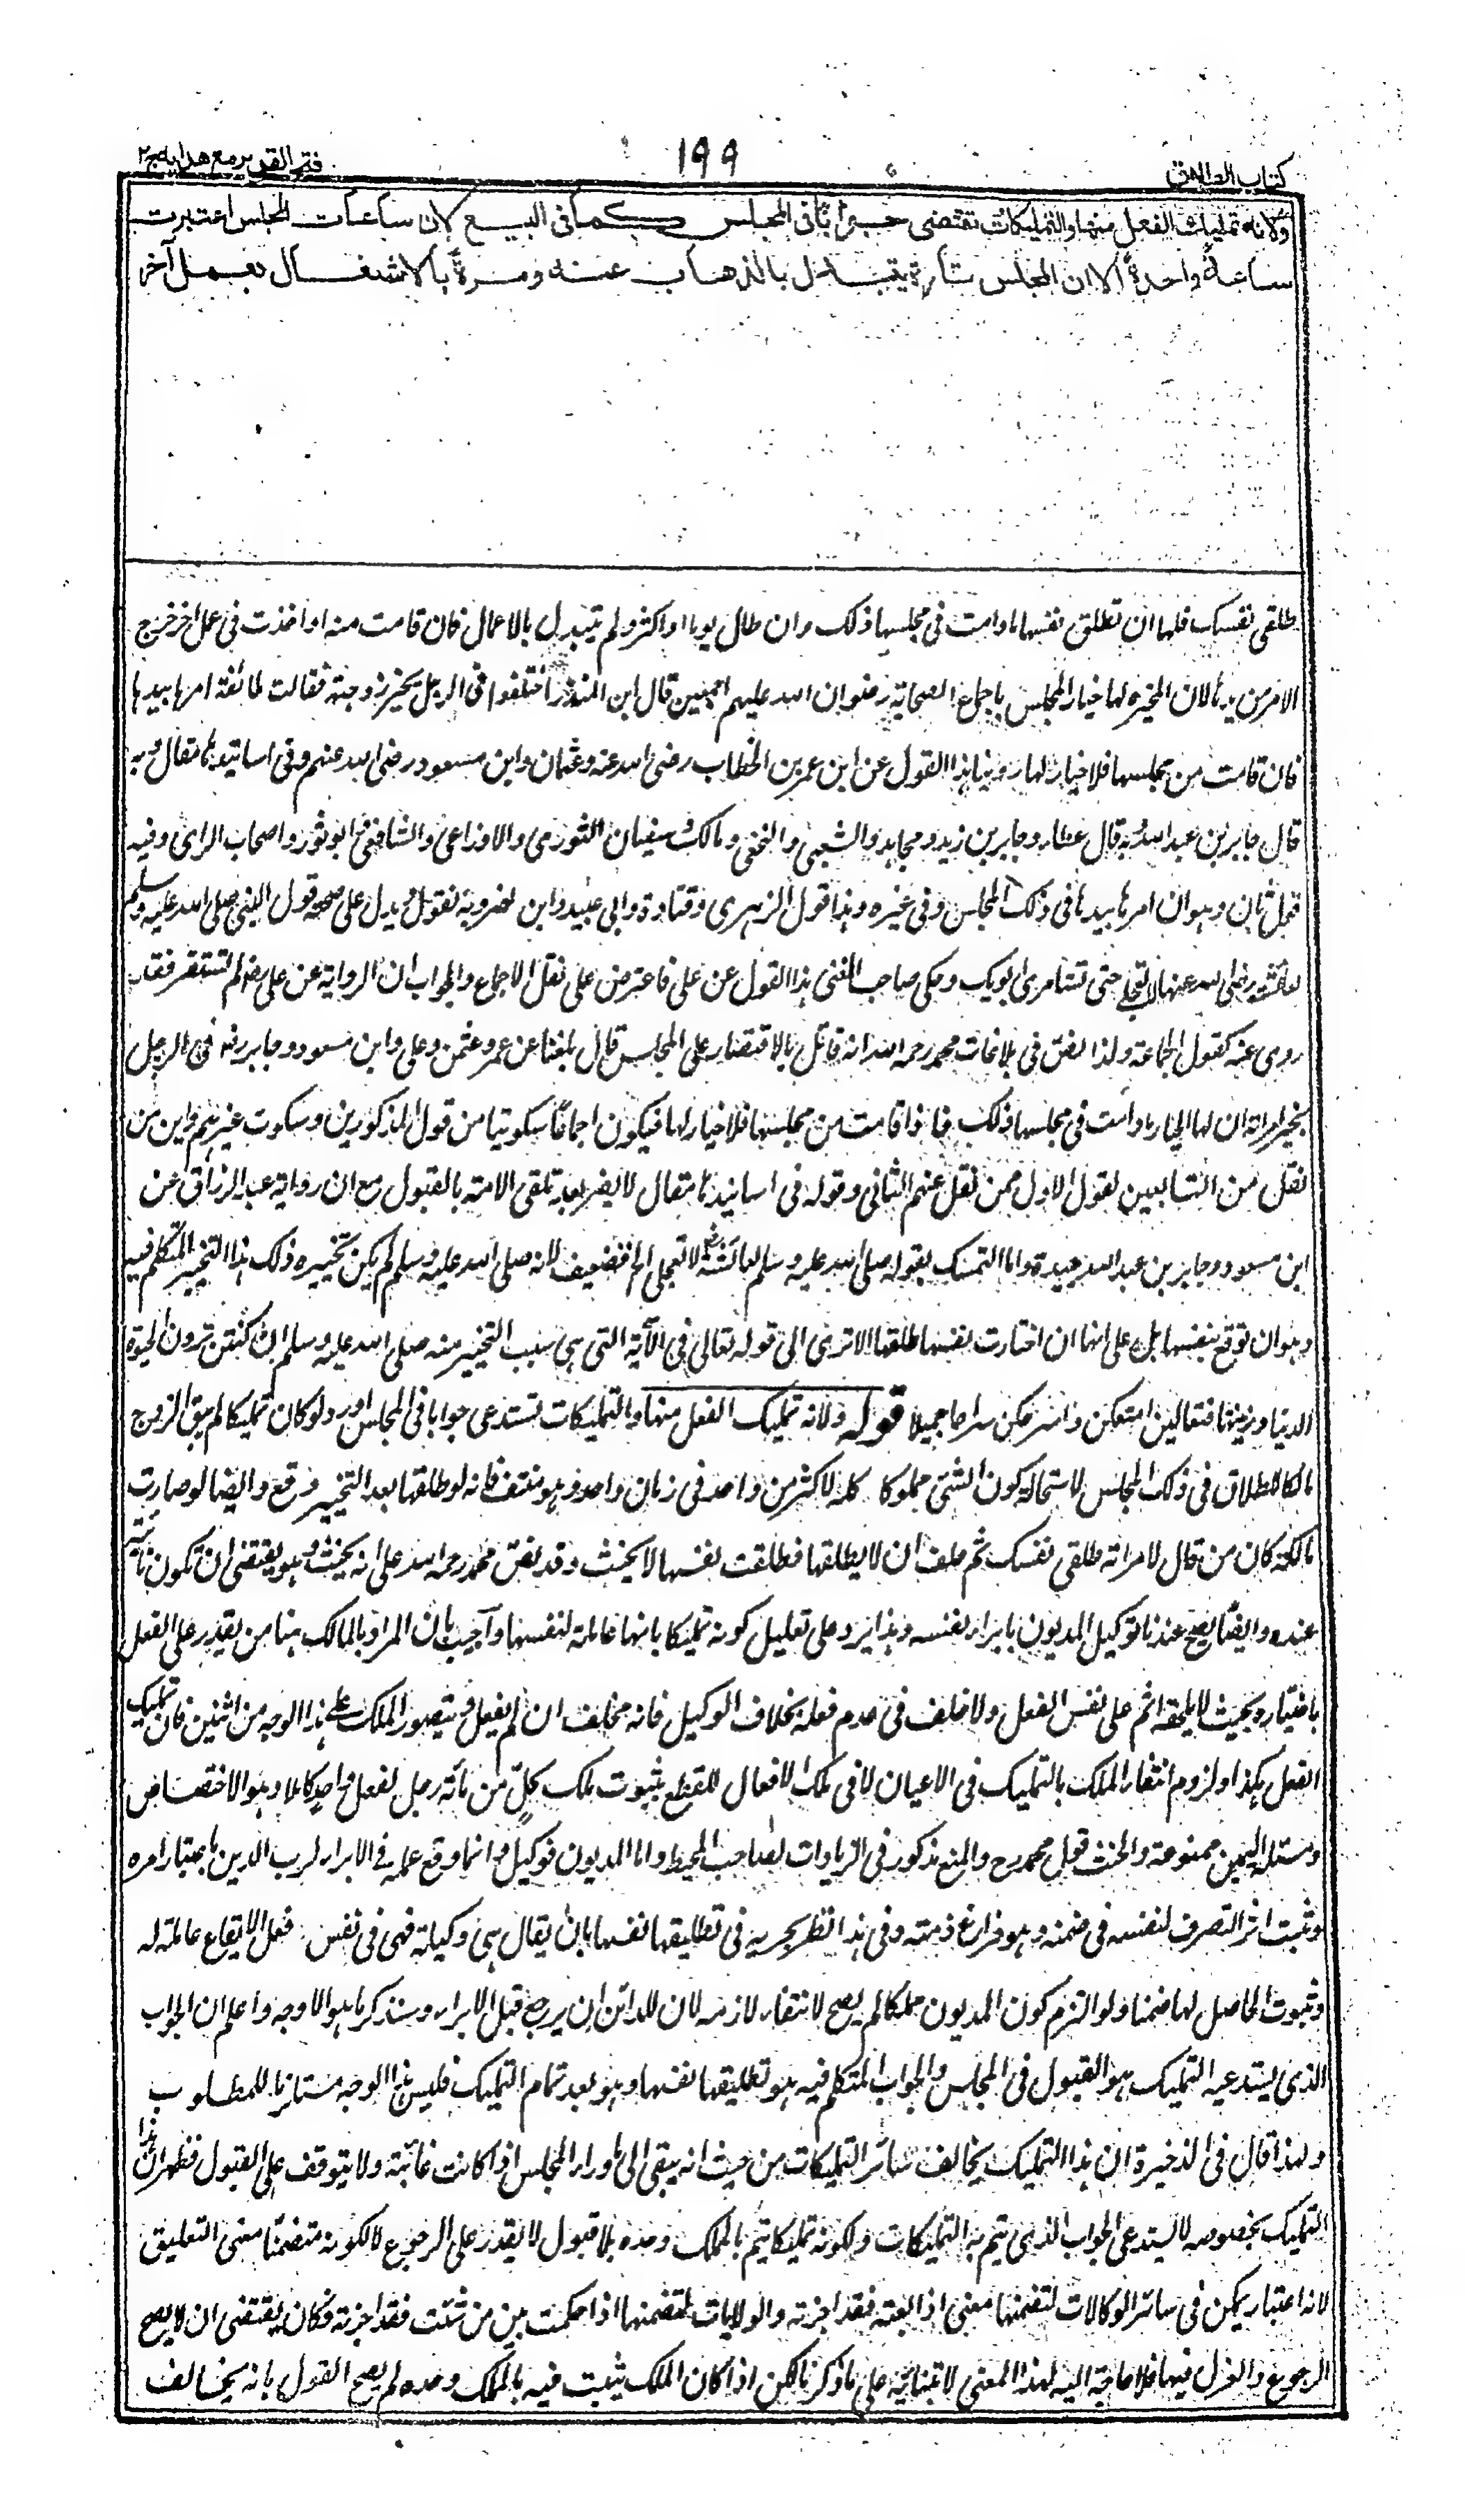 كتاب الطلاق
١٩٩
فتح القدير مع هدايه ج٢
ولانه تمليك الفعل منها والتمليكات تقتضى جوابا فى المجلس كما فى البيع لان ساعات المجلس اعتبرت
ساعة واحدة الا ان المجلس تارة يتبدل بالذهاب عنه ومرة بالاشتغال بعمل آخر
طلقى نفسك فلها ان تطلق نفسها ما دامت فى مجلسها ذلك وان طال يوما او اكثر ولم يتبدل بالاعمال فان قامت منه او اخذت فى عمل آخر خرج
الامر من يدها لان المخيرة لها خيار المجلس باجماع الصحابة رضوان الله عليهم اجمعين قال ابن المنذر اختلفوا فى الرجل يخير زوجته فقالت طائفة امرها بيدها
فان قامت من مجلسها فلا خيار لها روينا هذا القول عن ابن عمر بن الخطاب رضى الله عنه وعثمان وابن مسعود رضى الله عنهم وفى اسانيدها مقال وبه
قال جابر بن عبد الله وبه قال عطاء وجابر بن زيد ومجاهد والشعبى والنخعى ومالك وسفيان الثورى والاوزاعى والشافعى وابو ثور واصحاب الرأى وفيه
قول ثان وهو ان امرها بيدها فى ذلك المجلس وفى غيره وهذا قول الزهرى وقتادة وابى عبيد وابن نصر وبه نقول ويدل على صحته قول النبى صلى الله عليه وسلم
لعائشة رضى الله عنها لا تعجلى حتى تستأمرى ابويك وحكى صاحب المغنى هذا القول عن على فاعترض على نقل الاجماع والجواب ان الرواية عن على رض لم تستقر فقد
روى عنه كقول الجماعة ولذا نص فى بلاغات محمد رحمه الله انه قائل بالاقتصار على المجلس قال بلغنا عن عمر وعثمن وعلى وابن مسعود وجابر رض فى الرجل
يخير امرأته ان لها الخيار ما دامت فى مجلسها ذلك فاذا قامت من مجلسها فلا خيار لها فيكون اجماعا سكوتيا من قول المذكورين وسكوت غيرهم واين من
نقل من التابعين لقول الاول ممن نقل عنهم الثانى وقوله فى اسانيدها مقال لا يضر بعد تلقى الامة بالقبول مع ان رواية عبد الرزاق عن
ابن مسعود وجابر بن عبد الله جيدة واما التمسك بقوله صلى الله عليه وسلم لعائشة رض لا تعجلى الخ فضعيف لانه صلى الله عليه وسلم لم يكن تخييره ذلك هذا التخيير المتكلم فيه
وهو ان توقع بنفسها بل على انها ان اختارت نفسها طلقها الا ترى الى قوله تعالى فى الآية التى هى سبب التخيير منه صلى الله عليه وسلم ان كنتن تردن الحيوة
الدنيا وزينتها فتعالين امتعكن واسرحكن سراحا جميلا قوله ولانه تمليك الفعل منها والتمليكات تستدعى جوابا فى المجلس اورد لو كان تمليكا لم يبق الزوج
مالكا للطلاق فى ذلك المجلس لاستحالة كون الشئ مملوكا كله لاكثر من واحد فى زمان واحد وهو منتف فانه لو طلقها بعد التخيير وقع وايضا لو صارت
مالكة كان من قال لامرأته طلقى نفسك ثم حلف ان لا يطلقها فطلقت نفسها لا يحنث وقد نص محمد رحمه الله على انه يحنث وهو يقتضى ان تكون نائبة
عنده وايضا يصح عندنا توكيل المديون بابراء نفسه وهذا يرد على تعليل كونه تمليكا بانها عاملة لنفسها واجيب بان المراد بالمالك هنا من يقدر على الفعل
باختياره بحيث لا يلحقه اثم على نفس الفعل ولا خلف فى عدم فعله بخلاف الوكيل فانه مخلف ان لم يفعل ويتصور الملك على هذا الوجه من اثنين فان تمليك
الفعل هكذا ولزوم انتفاء الملك بالتمليك فى الاعيان لا فى ملك الافعال للقطع بثبوت ملك كل من مائة رجل لفعل واحد كاملا وهو الاختصاص
ومسئلة اليمين ممنوعة والحنث قول محمد رح والمنع مذكور فى الزيادات لصاحب المحيط واما المديون فوكيل وانما وقع عمله فى الابراء لرب الدين باعتبار امره
وثبت اثر التصرف لنفسه فى ضمنه وهو فراغ ذمته وفى هذا نظر يجريه فى تطليقها نفسها بان يقال هى وكيلة فهى فى نفس فعل الايقاع عاملة له
وثبوت الحاصل لها ضمنا ولو التزم كون المديون مملكا لم يصح لانتفاء لازمه لان للدائن ان يرجع قبل الابراء وسنذكر ما هو الاوجه واعلم ان الجواب
الذى يستدعيه التمليك هو القبول فى المجلس والجواب المتكلم فيه هو تطليقها نفسها وهو بعد تمام التمليك فليس هذا الوجه مستلزما للمطلوب
ولهذا قال فى الذخيرة ان هذا التمليك يخالف سائر التمليكات من حيث انه يبقى الى ما وراء المجلس اذا كانت غائبة ولا يتوقف على القبول فظهر ان هذا
التمليك بخصوصه لا يستدعى الجواب الذى يتم به التمليكات ولكونه تمليكا يتم بالمملك وحده بلا قبول لا يقدر على الرجوع لا لكونه متضمنا معنى التعليق
لانه اعتبار يمكن فى سائر الوكالات لتضمنها معنى اذا بعته فقد اجزته والولايات لتضمنها اذا حكمت بين من شئت فقد اجزته فكان يقتضى ان لا يصح
الرجوع والعزل فيهما فلا حاجة اليه لهذا المعنى لابتنائه على ما ذكرنا لكن اذا كان الملك يثبت فيه بالمملك وحده لم يصح القول بانه يخالف